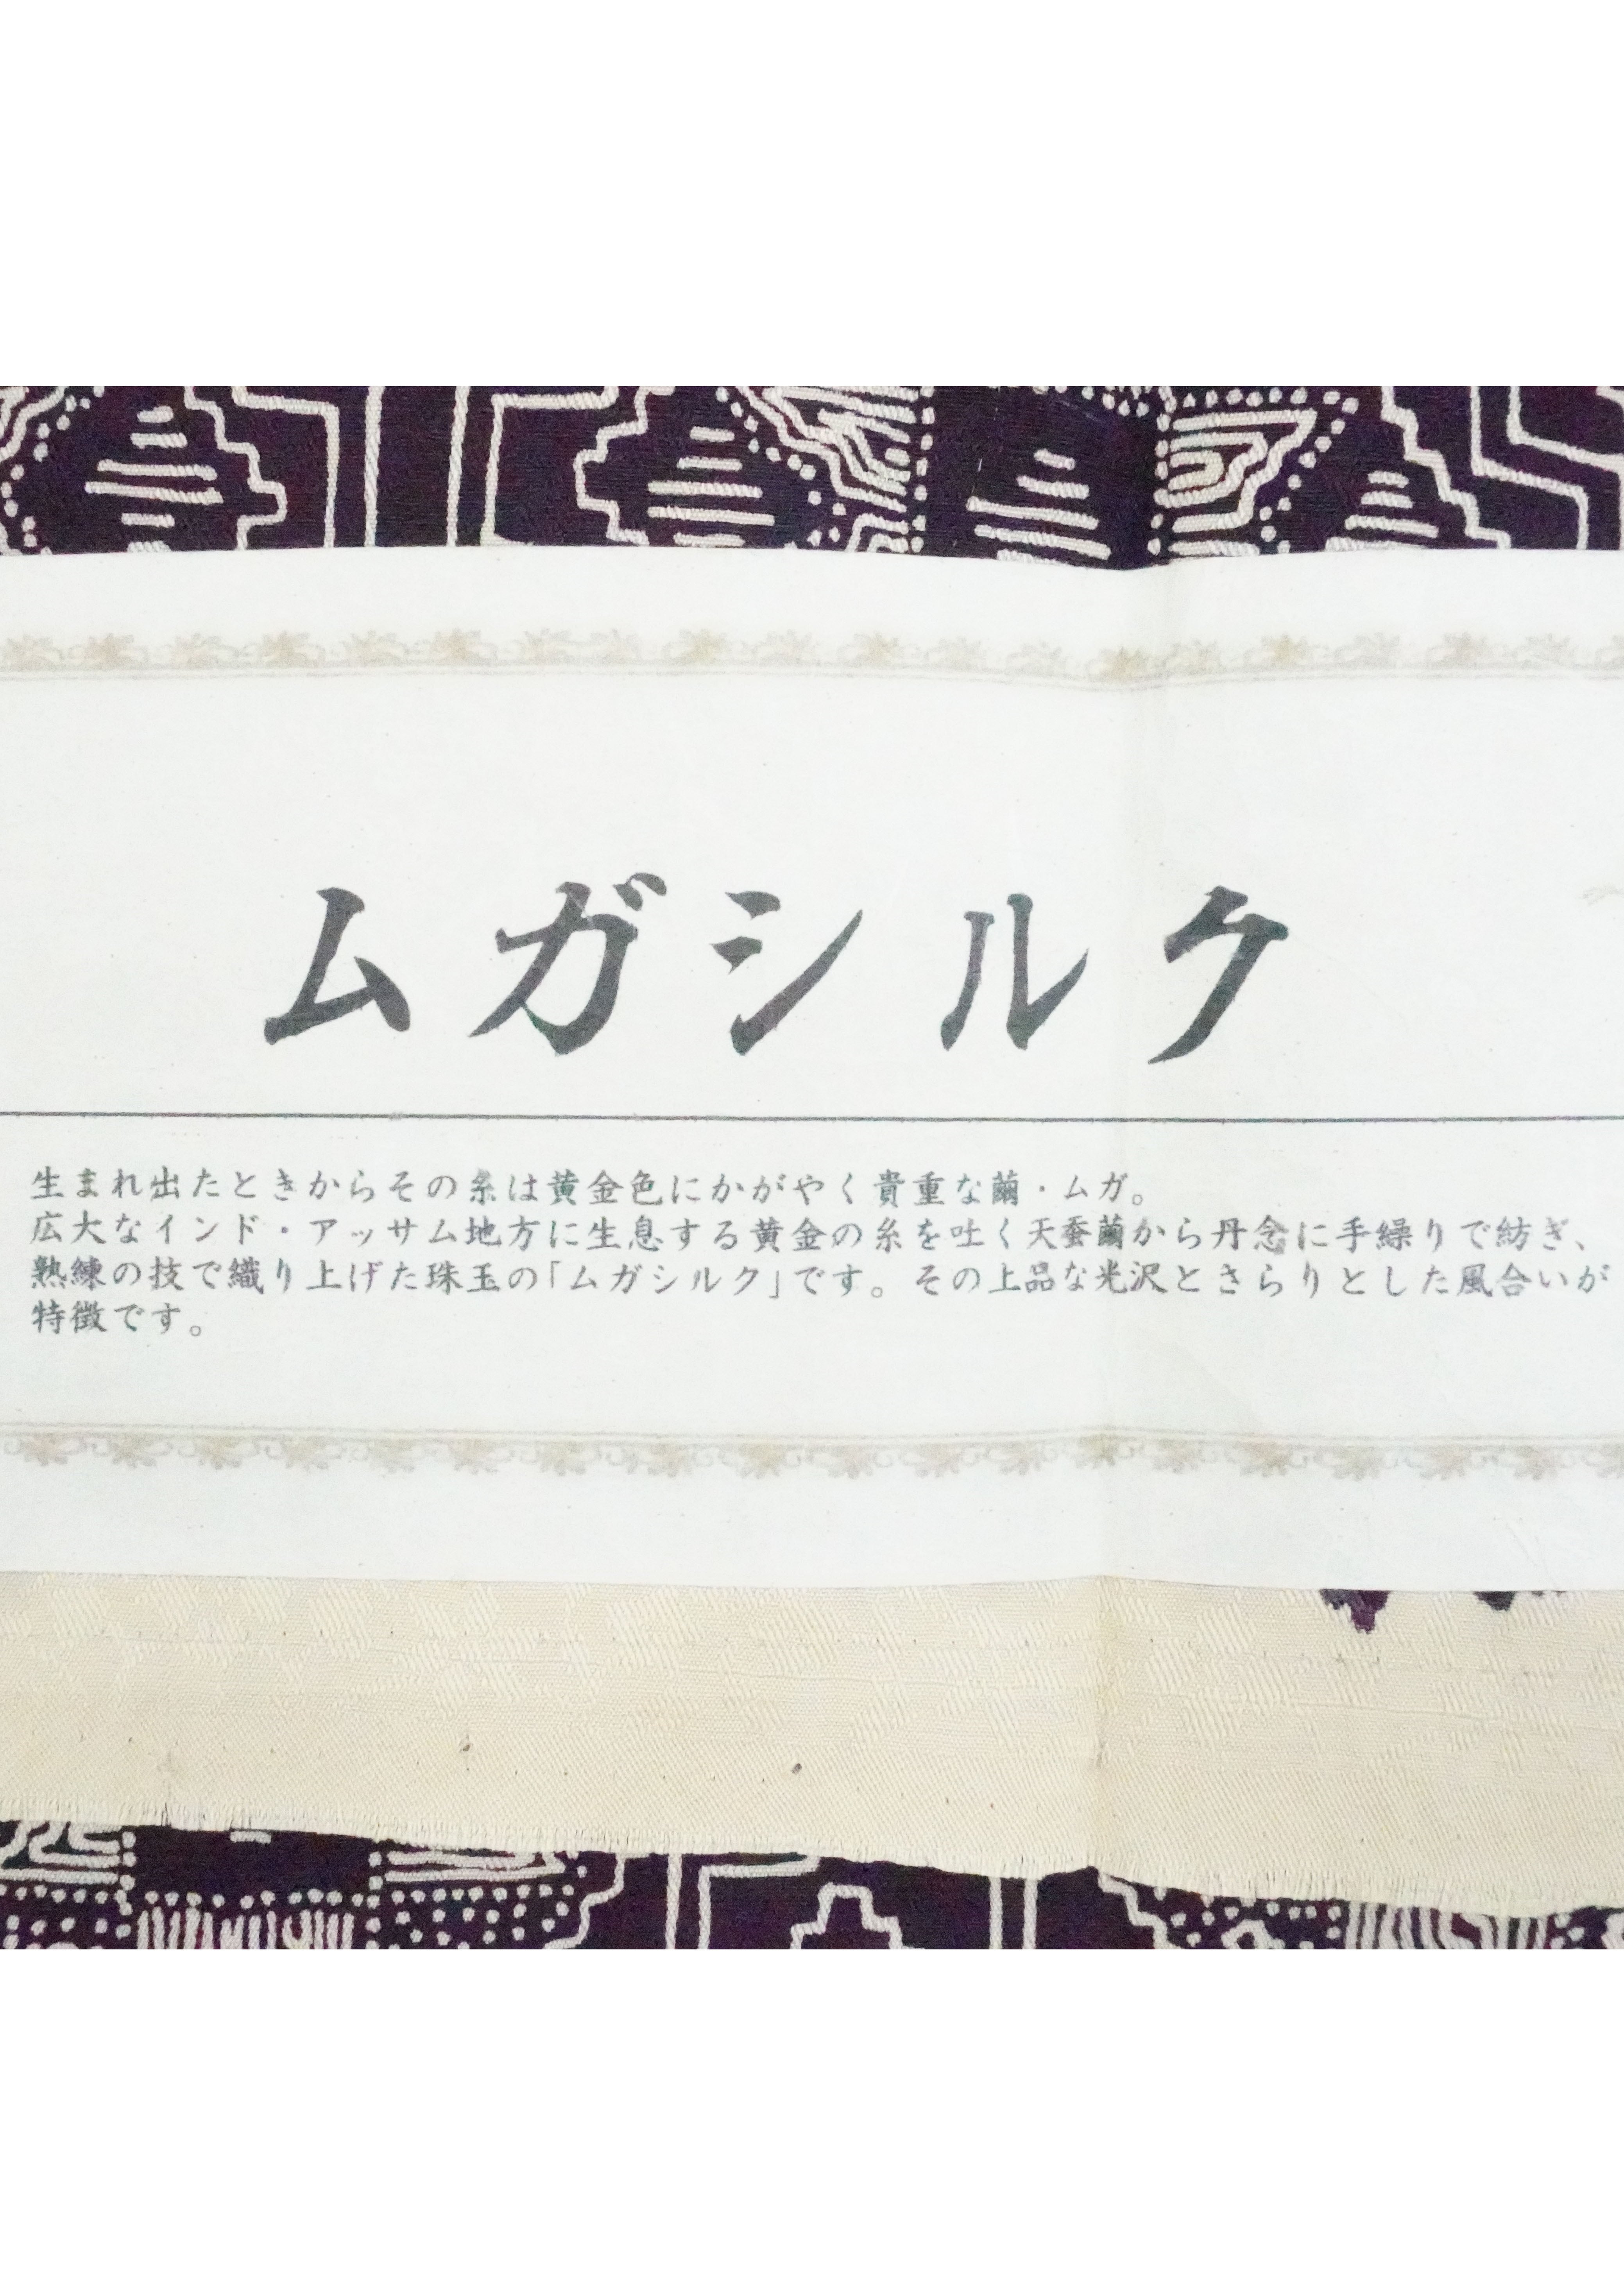 ムガシルク
生まれ出たときからその糸は黄金色にかがやく貴重な繭・ムガ。
広大なインド・アッサム地方に生息する黄金の糸を吐く天蚕繭から丹念に手繰りで紡ぎ、
熟練の技で織り上げた珠玉の「ムガシルク」です。その上品な光沢とさらりとした風合いが
特徴です。